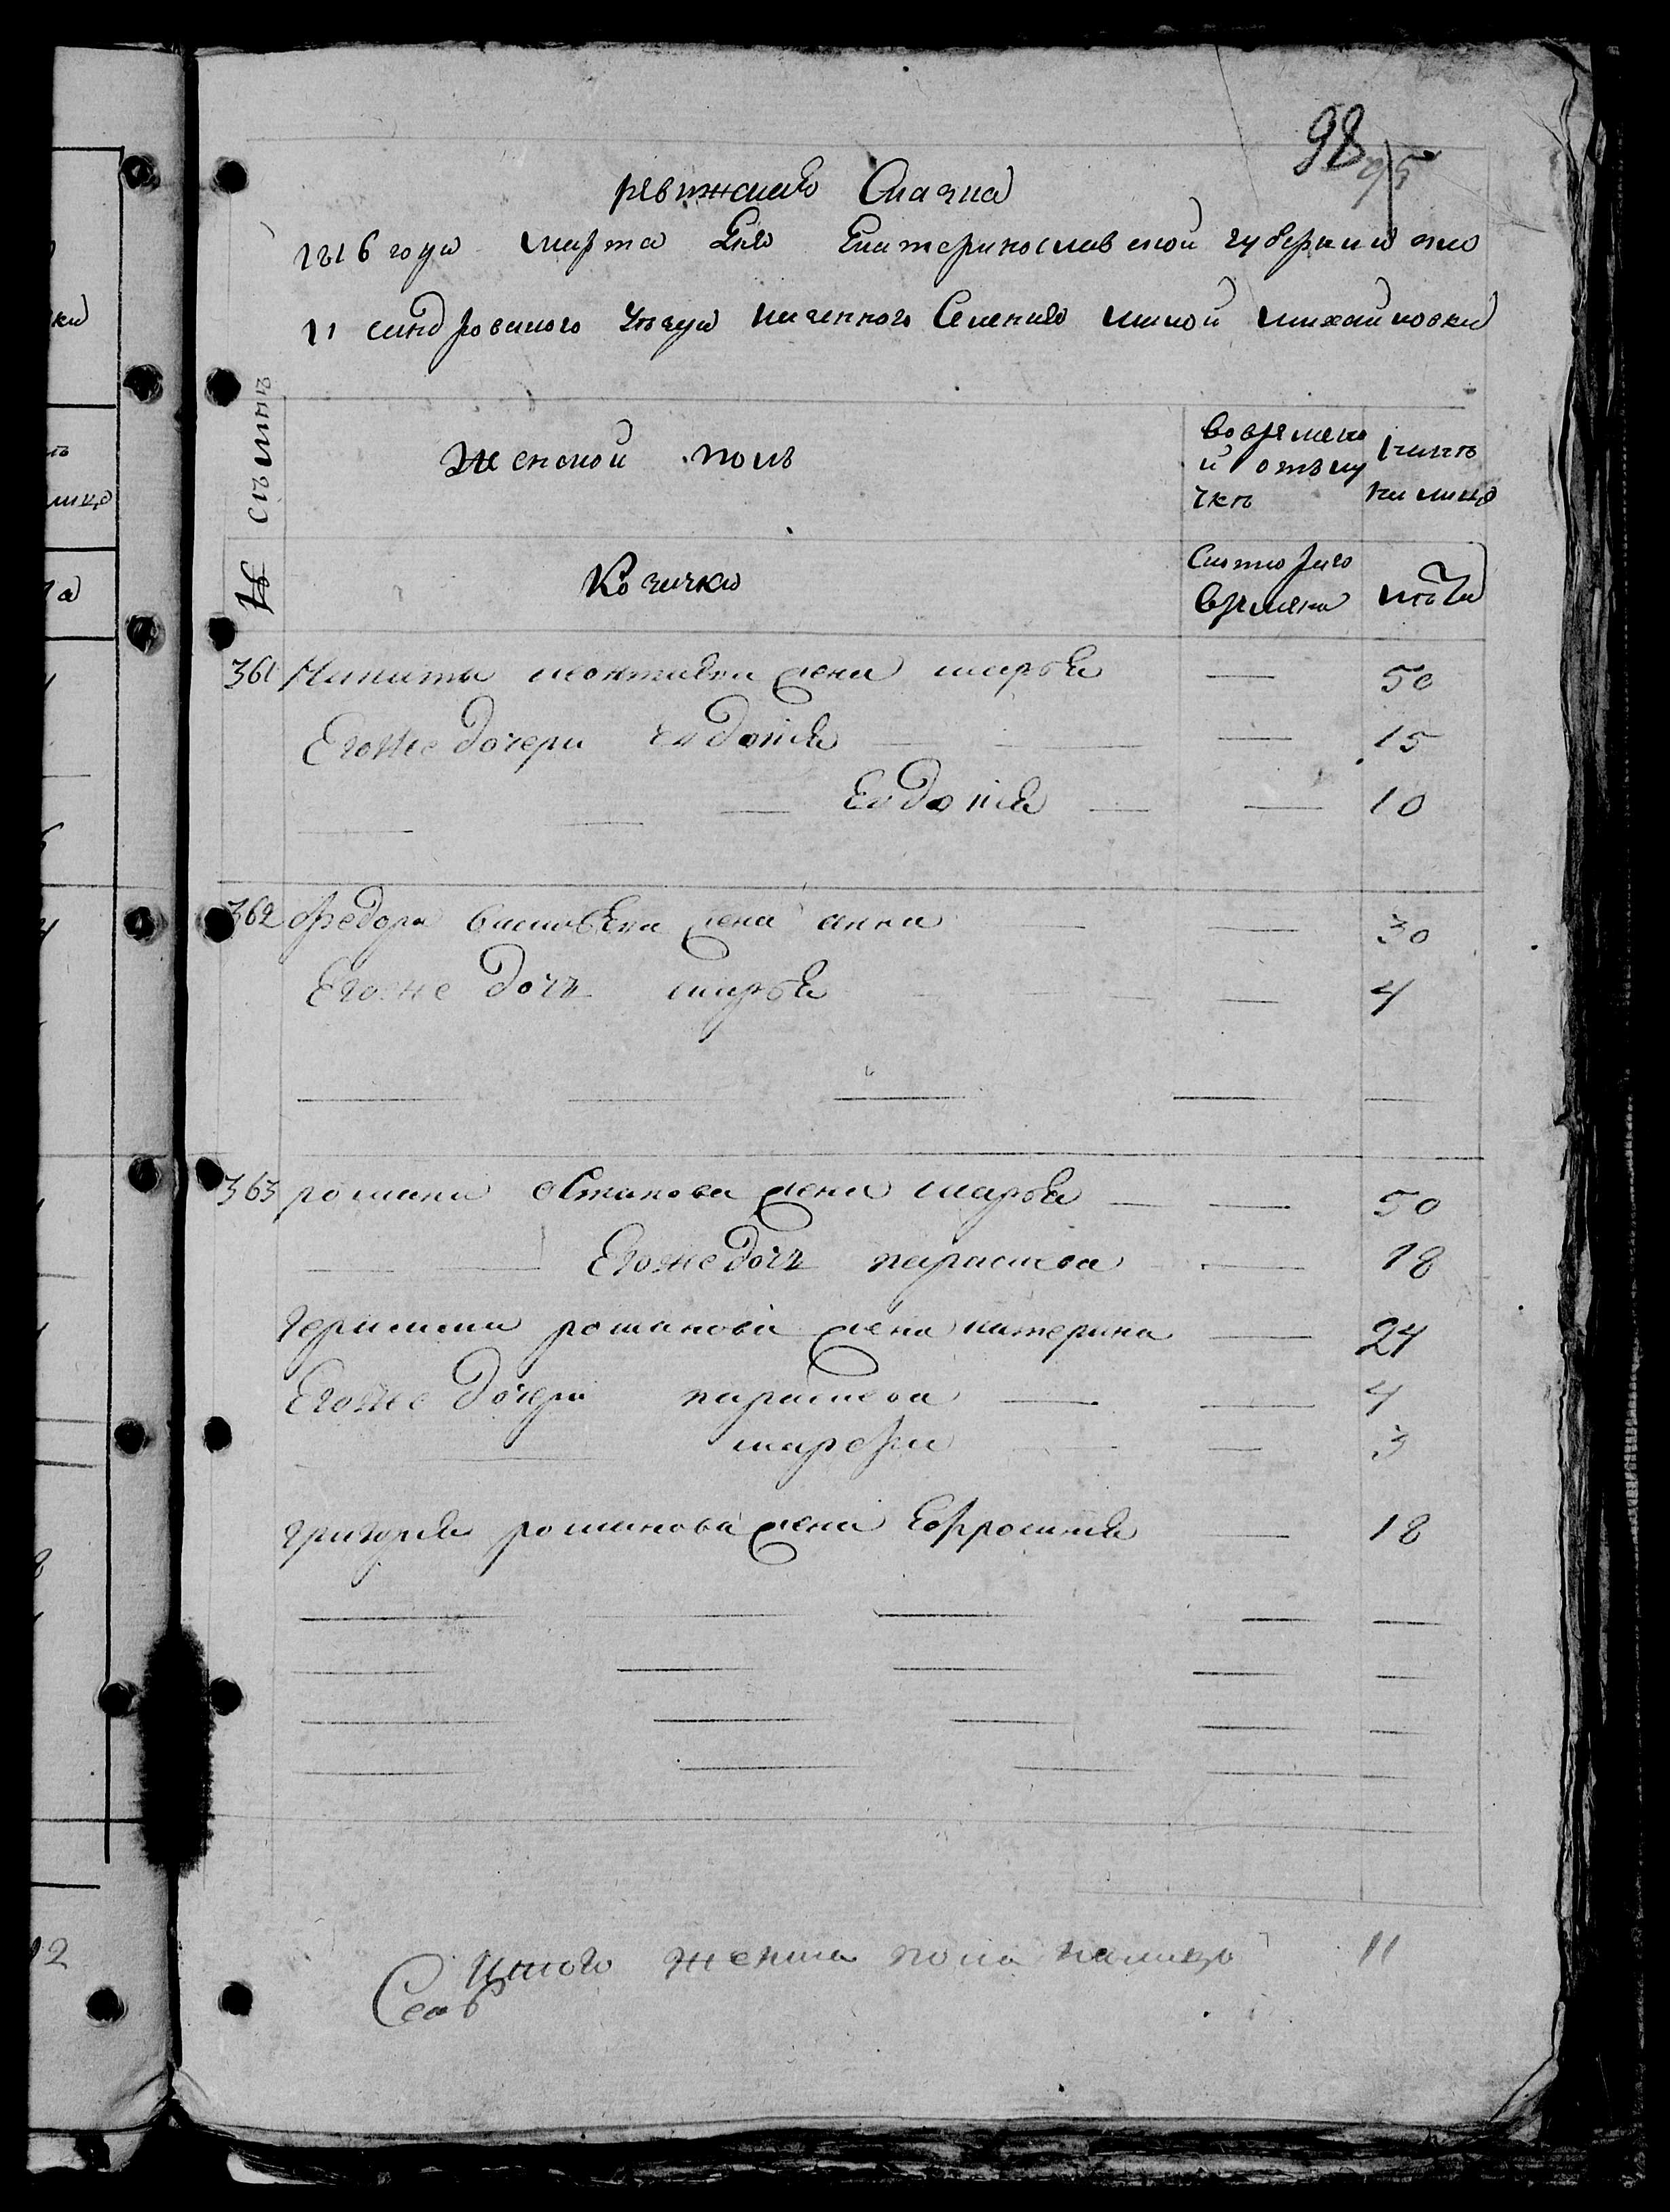 98
95
ревижская Сказка
1816 года марта дня Екатеринославской губернии пав
лоградского уезда казенного Селения малой михайловки
№ Семьи
Женской полъ
во време
нной отлу
чкѣ
нынѣ
на лицо
Козачки
Скоторого
Времени
лѣта
361 Никиты леонтиева жена марья — 50
Егоже дочери Евдокия — 15
Евдокия — 10
362 Федора васильева жена анна — 30
Егоже дочь марья — 4
363 романа жена марья — 50
Егоже дочь параскева — 18
герасима романова жена катерина — 24
Егоже дочери параскева — 4
марфа — 3
григорья романова жена Ефросиния — 18
Итого женска пола налицо 11